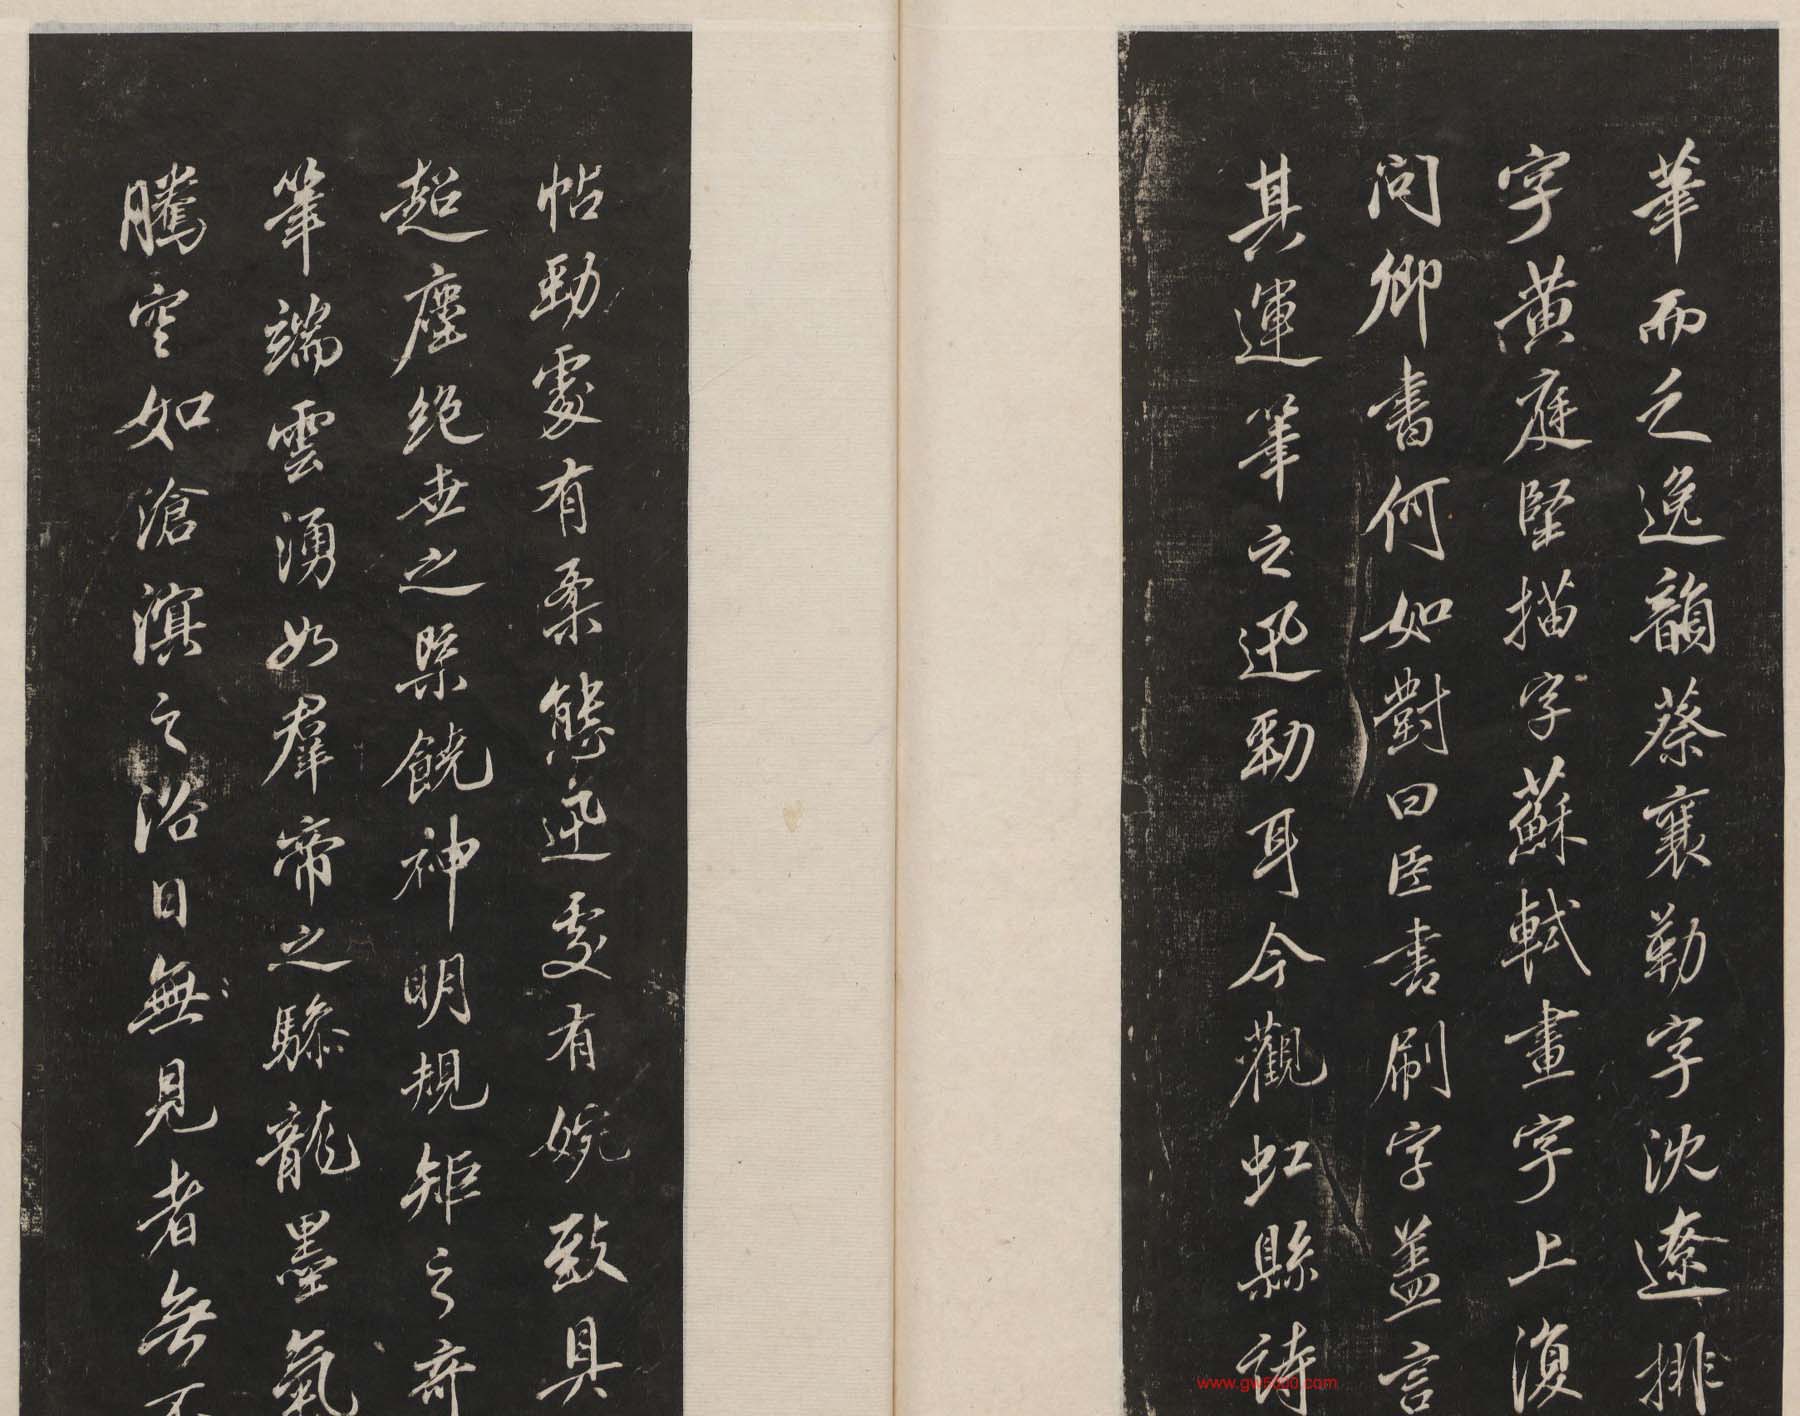 華而乏逸韻蔡襄勒字沈遼排
字黃庭堅描字蘇軾畫字上復
問卿書何如對曰臣書刷字蓋言
其運筆之迅勁耳今觀虹縣詩
帖勁處有柔態迅處有婉致具
超塵絕世之槩饒神明規矩之奇
筆端雲湧如群帝之驂龍墨氣
騰空如滄溟之浴日無見者無不
www.gw5000.com